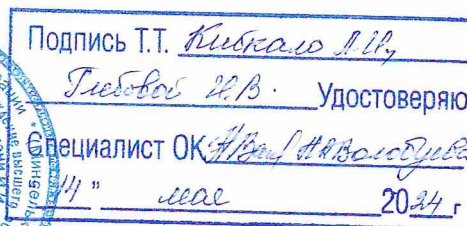 Подпись Т.Т. Кибкало Л.И.,
Глебовой И.В. Удостоверяю
Специалист ОК Н.А.Волобуева
14 " мая 2024 г